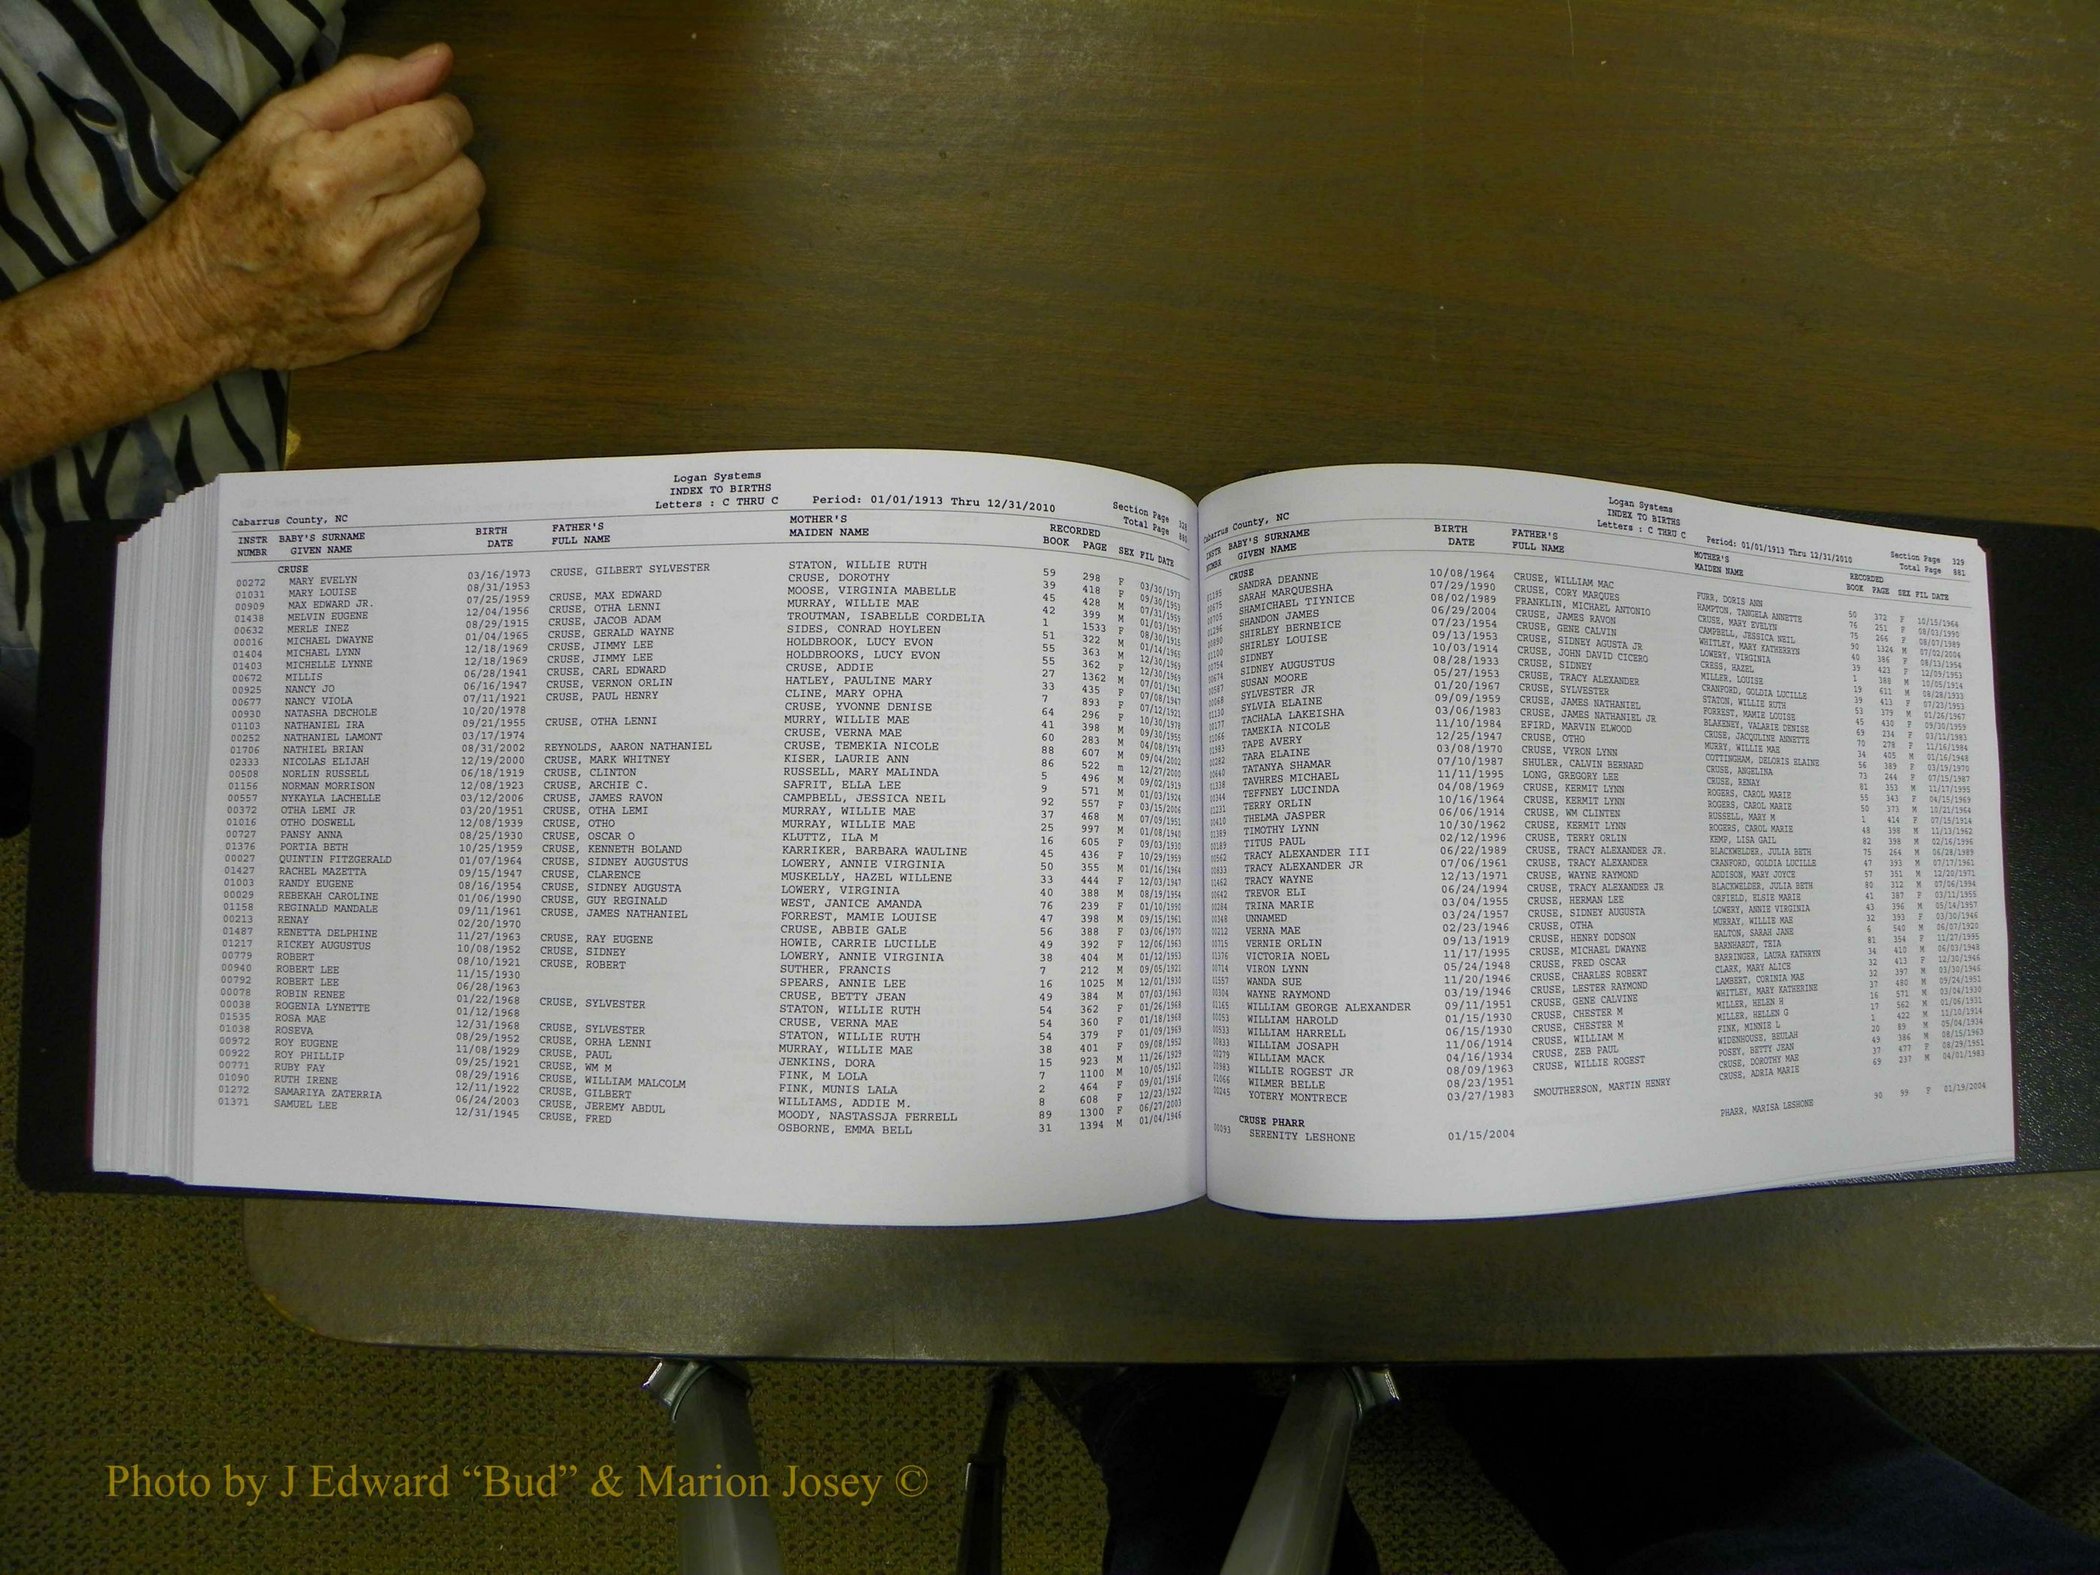 Logan Systems
INDEX TO BIRTHS
Letters : C THRU C Period: 01/01/1913 Thru 12/31/2010
Cabarrus County, NC Section Page 328
Total Page 880
INSTR NUMBR BABY'S SURNAME GIVEN NAME BIRTH DATE FATHER'S FULL NAME MOTHER'S MAIDEN NAME RECORDED BOOK PAGE SEX FIL DATE
CRUSE
00272 MARY EVELYN 03/16/1973 CRUSE, GILBERT SYLVESTER STATON, WILLIE RUTH 59 298 F 03/30/1973
01031 MARY LOUISE 08/31/1953 CRUSE, DOROTHY 39 418 F 09/30/1953
00909 MAX EDWARD JR. 07/25/1959 CRUSE, MAX EDWARD MOOSE, VIRGINIA MABELLE 45 428 M 07/31/1959
01438 MELVIN EUGENE 12/04/1956 CRUSE, OTHA LENNI MURRAY, WILLIE MAE 42 399 M 01/03/1957
00632 MERLE INEZ 08/29/1915 CRUSE, JACOB ADAM TROUTMAN, ISABELLE CORDELIA 1 1533 F 08/30/1915
00016 MICHAEL DWAYNE 01/04/1965 CRUSE, GERALD WAYNE SIDES, CONRAD HOYLEEN 51 322 M 01/14/1965
01404 MICHAEL LYNN 12/18/1969 CRUSE, JIMMY LEE HOLDBROOK, LUCY EVON 55 363 M 12/30/1969
01403 MICHELLE LYNNE 12/18/1969 CRUSE, JIMMY LEE HOLDBROOKS, LUCY EVON 55 362 F 12/30/1969
00672 MILLIS 06/28/1941 CRUSE, CARL EDWARD CRUSE, ADDIE 27 1362 M 07/01/1941
00925 NANCY JO 06/16/1947 CRUSE, VERNON ORLIN HATLEY, PAULINE MARY 33 435 F 07/08/1947
00677 NANCY VIOLA 07/11/1921 CRUSE, PAUL HENRY CLINE, MARY OPHA 7 893 F 07/12/1921
00930 NATASHA DECHOLE 10/20/1978 CRUSE, YVONNE DENISE 64 296 F 10/30/1978
01103 NATHANIEL IRA 09/21/1955 CRUSE, OTHA LENNI MURRY, WILLIE MAE 41 398 M 09/30/1955
00252 NATHANIEL LAMONT 03/17/1974 CRUSE, VERNA MAE 60 283 M 04/08/1974
01706 NATHIEL BRIAN 08/31/2002 REYNOLDS, AARON NATHANIEL CRUSE, TEMEKIA NICOLE 88 607 M 09/04/2002
02333 NICOLAS ELIJAH 12/19/2000 CRUSE, MARK WHITNEY KISER, LAURIE ANN 86 522 m 12/27/2000
00508 NORLIN RUSSELL 06/18/1919 CRUSE, CLINTON RUSSELL, MARY MALINDA 5 496 M 09/02/1919
01156 NORMAN MORRISON 12/08/1923 CRUSE, ARCHIE C. SAFRIT, ELLA LEE 9 571 M 01/03/1924
00557 NYKAYLA LACHELLE 03/12/2006 CRUSE, JAMES RAVON CAMPBELL, JESSICA NEIL 92 557 F 03/15/2006
00372 OTHA LEMI JR 03/20/1951 CRUSE, OTHA LEMI MURRAY, WILLIE MAE 37 468 M 07/09/1951
01016 OTHO DOSWELL 12/08/1939 CRUSE, OTHO MURRAY, WILLIE MAE 25 997 M 01/08/1940
00727 PANSY ANNA 08/25/1930 CRUSE, OSCAR O KLUTTZ, ILA M 16 605 F 09/03/1930
01376 PORTIA BETH 10/25/1959 CRUSE, KENNETH BOLAND KARRIKER, BARBARA WAULINE 45 436 F 10/29/1959
00027 QUINTIN FITZGERALD 01/07/1964 CRUSE, SIDNEY AUGUSTUS LOWERY, ANNIE VIRGINIA 50 355 M 01/16/1964
01427 RACHEL MAZETTA 09/15/1947 CRUSE, CLARENCE MUSKELLY, HAZEL WILLENE 33 444 F 12/03/1947
01003 RANDY EUGENE 08/16/1954 CRUSE, SIDNEY AUGUSTA LOWERY, VIRGINIA 40 388 M 08/19/1954
00029 REBEKAH CAROLINE 01/06/1990 CRUSE, GUY REGINALD WEST, JANICE AMANDA 76 239 F 01/10/1990
01158 REGINALD MANDALE 09/11/1961 CRUSE, JAMES NATHANIEL FORREST, MAMIE LOUISE 47 398 M 09/15/1961
00213 RENAY 02/20/1970 CRUSE, ABBIE GALE 56 388 F 03/06/1970
01487 RENETTA DELPHINE 11/27/1963 CRUSE, RAY EUGENE HOWIE, CARRIE LUCILLE 49 392 F 12/06/1963
01217 RICKEY AUGUSTUS 10/08/1952 CRUSE, SIDNEY LOWERY, ANNIE VIRGINIA 38 404 M 01/12/1953
00779 ROBERT 08/10/1921 CRUSE, ROBERT SUTHER, FRANCIS 7 212 M 09/05/1921
00940 ROBERT LEE 11/15/1930 SPEARS, ANNIE LEE 16 1025 M 12/01/1930
00792 ROBERT LEE 06/28/1963 CRUSE, BETTY JEAN 49 384 M 07/03/1963
00078 ROBIN RENEE 01/22/1968 CRUSE, SYLVESTER STATON, WILLIE RUTH 54 362 F 01/26/1968
00038 ROGENIA LYNETTE 01/12/1968 CRUSE, VERNA MAE 54 360 F 01/18/1968
01535 ROSA MAE 12/31/1968 CRUSE, SYLVESTER STATON, WILLIE RUTH 54 379 F 01/09/1969
01038 ROSEVA 08/29/1952 CRUSE, ORHA LENNI MURRAY, WILLIE MAE 38 401 F 09/08/1952
00972 ROY EUGENE 11/08/1929 CRUSE, PAUL JENKINS, DORA 15 923 M 11/26/1929
00922 ROY PHILLIP 09/25/1921 CRUSE, WM M FINK, M LOLA 7 1100 M 10/05/1921
00771 RUBY FAY 08/29/1916 CRUSE, WILLIAM MALCOLM FINK, MUNIS LALA 2 464 F 09/01/1916
01090 RUTH IRENE 12/11/1922 CRUSE, GILBERT WILLIAMS, ADDIE M. 8 608 F 12/23/1922
01272 SAMARIYA ZATERRIA 06/24/2003 CRUSE, JEREMY ABDUL MOODY, NASTASSJA FERRELL 89 1300 F 06/27/2003
01371 SAMUEL LEE 12/31/1945 CRUSE, FRED OSBORNE, EMMA BELL 31 1394 M 01/04/1946
Logan Systems
INDEX TO BIRTHS
Letters : C THRU C Period: 01/01/1913 Thru 12/31/2010
Cabarrus County, NC Section Page 329
Total Page 881
INSTR NUMBR BABY'S SURNAME GIVEN NAME BIRTH DATE FATHER'S FULL NAME MOTHER'S MAIDEN NAME RECORDED BOOK PAGE SEX FIL DATE
CRUSE
SANDRA DEANNE 10/08/1964 CRUSE, WILLIAM MAC FURR, DORIS ANN 50 372 F 10/15/1964
SARAH MARQUESHA 07/29/1990 CRUSE, CORY MARQUES HAMPTON, TANGELA ANNETTE 76 251 F 08/03/1990
SHAMICHAEL TIYNICE 08/02/1989 FRANKLIN, MICHAEL ANTONIO CRUSE, MARY EVELYN 75 266 F 08/07/1989
SHANDON JAMES 06/29/2004 CRUSE, JAMES RAVON CAMPBELL, JESSICA NEIL 90 1324 M 07/02/2004
SHIRLEY BERNEICE 07/23/1954 CRUSE, GENE CALVIN WHITLEY, MARY KATHERRYN 40 386 F 08/13/1954
SHIRLEY LOUISE 09/13/1953 CRUSE, SIDNEY AGUSTA JR LOWERY, VIRGINIA 39 423 F 12/09/1953
SIDNEY 10/03/1914 CRUSE, JOHN DAVID CICERO CRESS, HAZEL 1 388 M 10/05/1914
SIDNEY AUGUSTUS 08/28/1933 CRUSE, SIDNEY MILLER, LOUISE 19 611 M 08/28/1933
SUSAN MOORE 05/27/1953 CRUSE, TRACY ALEXANDER CRANFORD, GOLDIA LUCILLE 39 413 F 07/23/1953
SYLVESTER JR 01/20/1967 CRUSE, SYLVESTER STATON, WILLIE RUTH 53 379 M 01/26/1967
SYLVIA ELAINE 09/09/1959 CRUSE, JAMES NATHANIEL FORREST, MAMIE LOUISE 45 430 F 09/30/1959
TACHALA LAKEISHA 03/06/1983 CRUSE, JAMES NATHANIEL JR BLAKENEY, VALARIE DENISE 69 234 F 03/11/1983
TAMEKIA NICOLE 11/10/1984 EFIRD, MARVIN ELWOOD CRUSE, JACQULINE ANNETTE 70 278 F 11/16/1984
TAPE AVERY 12/25/1947 CRUSE, OTHO MURRY, WILLIE MAE 34 405 M 01/16/1948
TARA ELAINE 03/08/1970 CRUSE, VYRON LYNN COTTINGHAM, DELORIS ELAINE 56 389 F 03/19/1970
TATANYA SHAMAR 07/10/1987 SHULER, CALVIN BERNARD CRUSE, ANGELINA 73 244 F 07/15/1987
TAVHRES MICHAEL 11/11/1995 LONG, GREGORY LEE CRUSE, RENAY 81 353 M 11/17/1995
TEFFNEY LUCINDA 04/08/1969 CRUSE, KERMIT LYNN ROGERS, CAROL MARIE 55 343 F 04/15/1969
TERRY ORLIN 10/16/1964 CRUSE, KERMIT LYNN ROGERS, CAROL MARIE 50 373 M 10/21/1964
THELMA JASPER 06/06/1914 CRUSE, WM CLINTEN RUSSELL, MARY M 1 414 F 07/15/1914
TIMOTHY LYNN 10/30/1962 CRUSE, KERMIT LYNN ROGERS, CAROL MARIE 48 398 M 11/13/1962
TITUS PAUL 02/12/1996 CRUSE, TERRY ORLIN KEMP, LISA GAIL 82 398 M 02/16/1996
TRACY ALEXANDER III 06/22/1989 CRUSE, TRACY ALEXANDER JR. BLACKWELDER, JULIA BETH 75 264 M 06/28/1989
TRACY ALEXANDER JR 07/06/1961 CRUSE, TRACY ALEXANDER CRANFORD, GOLDIA LUCILLE 47 393 M 07/17/1961
TRACY WAYNE 12/13/1971 CRUSE, WAYNE RAYMOND ADDISON, MARY JOYCE 57 351 M 12/20/1971
TREVOR ELI 06/24/1994 CRUSE, TRACY ALEXANDER JR BLACKWELDER, JULIA BETH 80 312 M 07/06/1994
TRINA MARIE 03/04/1955 CRUSE, HERMAN LEE ORFIELD, ELSIE MARIE 41 387 F 03/11/1955
UNNAMED 03/24/1957 CRUSE, SIDNEY AUGUSTA LOWERY, ANNIE VIRGINIA 43 396 M 05/14/1957
VERNA MAE 02/23/1946 CRUSE, OTHA MURRAY, WILLIE MAE 32 393 F 03/30/1946
VERNIE ORLIN 09/13/1919 CRUSE, HENRY DODSON HALTON, SARAH JANE 6 540 M 06/07/1920
VICTORIA NOEL 11/17/1995 CRUSE, MICHAEL DWAYNE BARNHARDT, TEIA 81 354 F 11/27/1995
VIRON LYNN 05/24/1948 CRUSE, FRED OSCAR BARRINGER, LAURA KATHRYN 34 410 M 06/03/1948
WANDA SUE 11/20/1946 CRUSE, CHARLES ROBERT CLARK, MARY ALICE 32 413 F 12/30/1946
WAYNE RAYMOND 03/19/1946 CRUSE, LESTER RAYMOND LAMBERT, CORINIA MAE 32 397 M 03/30/1946
WILLIAM GEORGE ALEXANDER 09/11/1951 CRUSE, GENE CALVINE WHITLEY, MARY KATHERINE 37 480 M 09/24/1951
WILLIAM HAROLD 01/15/1930 CRUSE, CHESTER M MILLER, HELEN H 16 571 M 03/04/1930
WILLIAM HARRELL 06/15/1930 CRUSE, CHESTER M MILLER, HELLEN G 17 562 M 01/06/1931
WILLIAM JOSAPH 11/06/1914 CRUSE, WILLIAM M FINK, MINNIE L 1 422 M 11/10/1914
WILLIAM MACK 04/16/1934 CRUSE, ZEB PAUL WIDENHOUSE, BEULAH 20 89 M 05/04/1934
WILLIE ROGEST JR 08/09/1963 CRUSE, WILLIE ROGEST POSEY, BETTY JEAN 49 386 M 08/15/1963
WILMER BELLE 08/23/1951 CRUSE, DOROTHY MAE 37 477 F 08/29/1951
YOTERY MONTRECE 03/27/1983 SMOUTHERSON, MARTIN HENRY CRUSE, ADRIA MARIE 69 237 M 04/01/1983
CRUSE PHARR
00093 SERENITY LESHONE 01/15/2004 PHARR, MARISA LESHONE 90 99 F 01/19/2004
Photo by J Edward “Bud” & Marion Josey ©